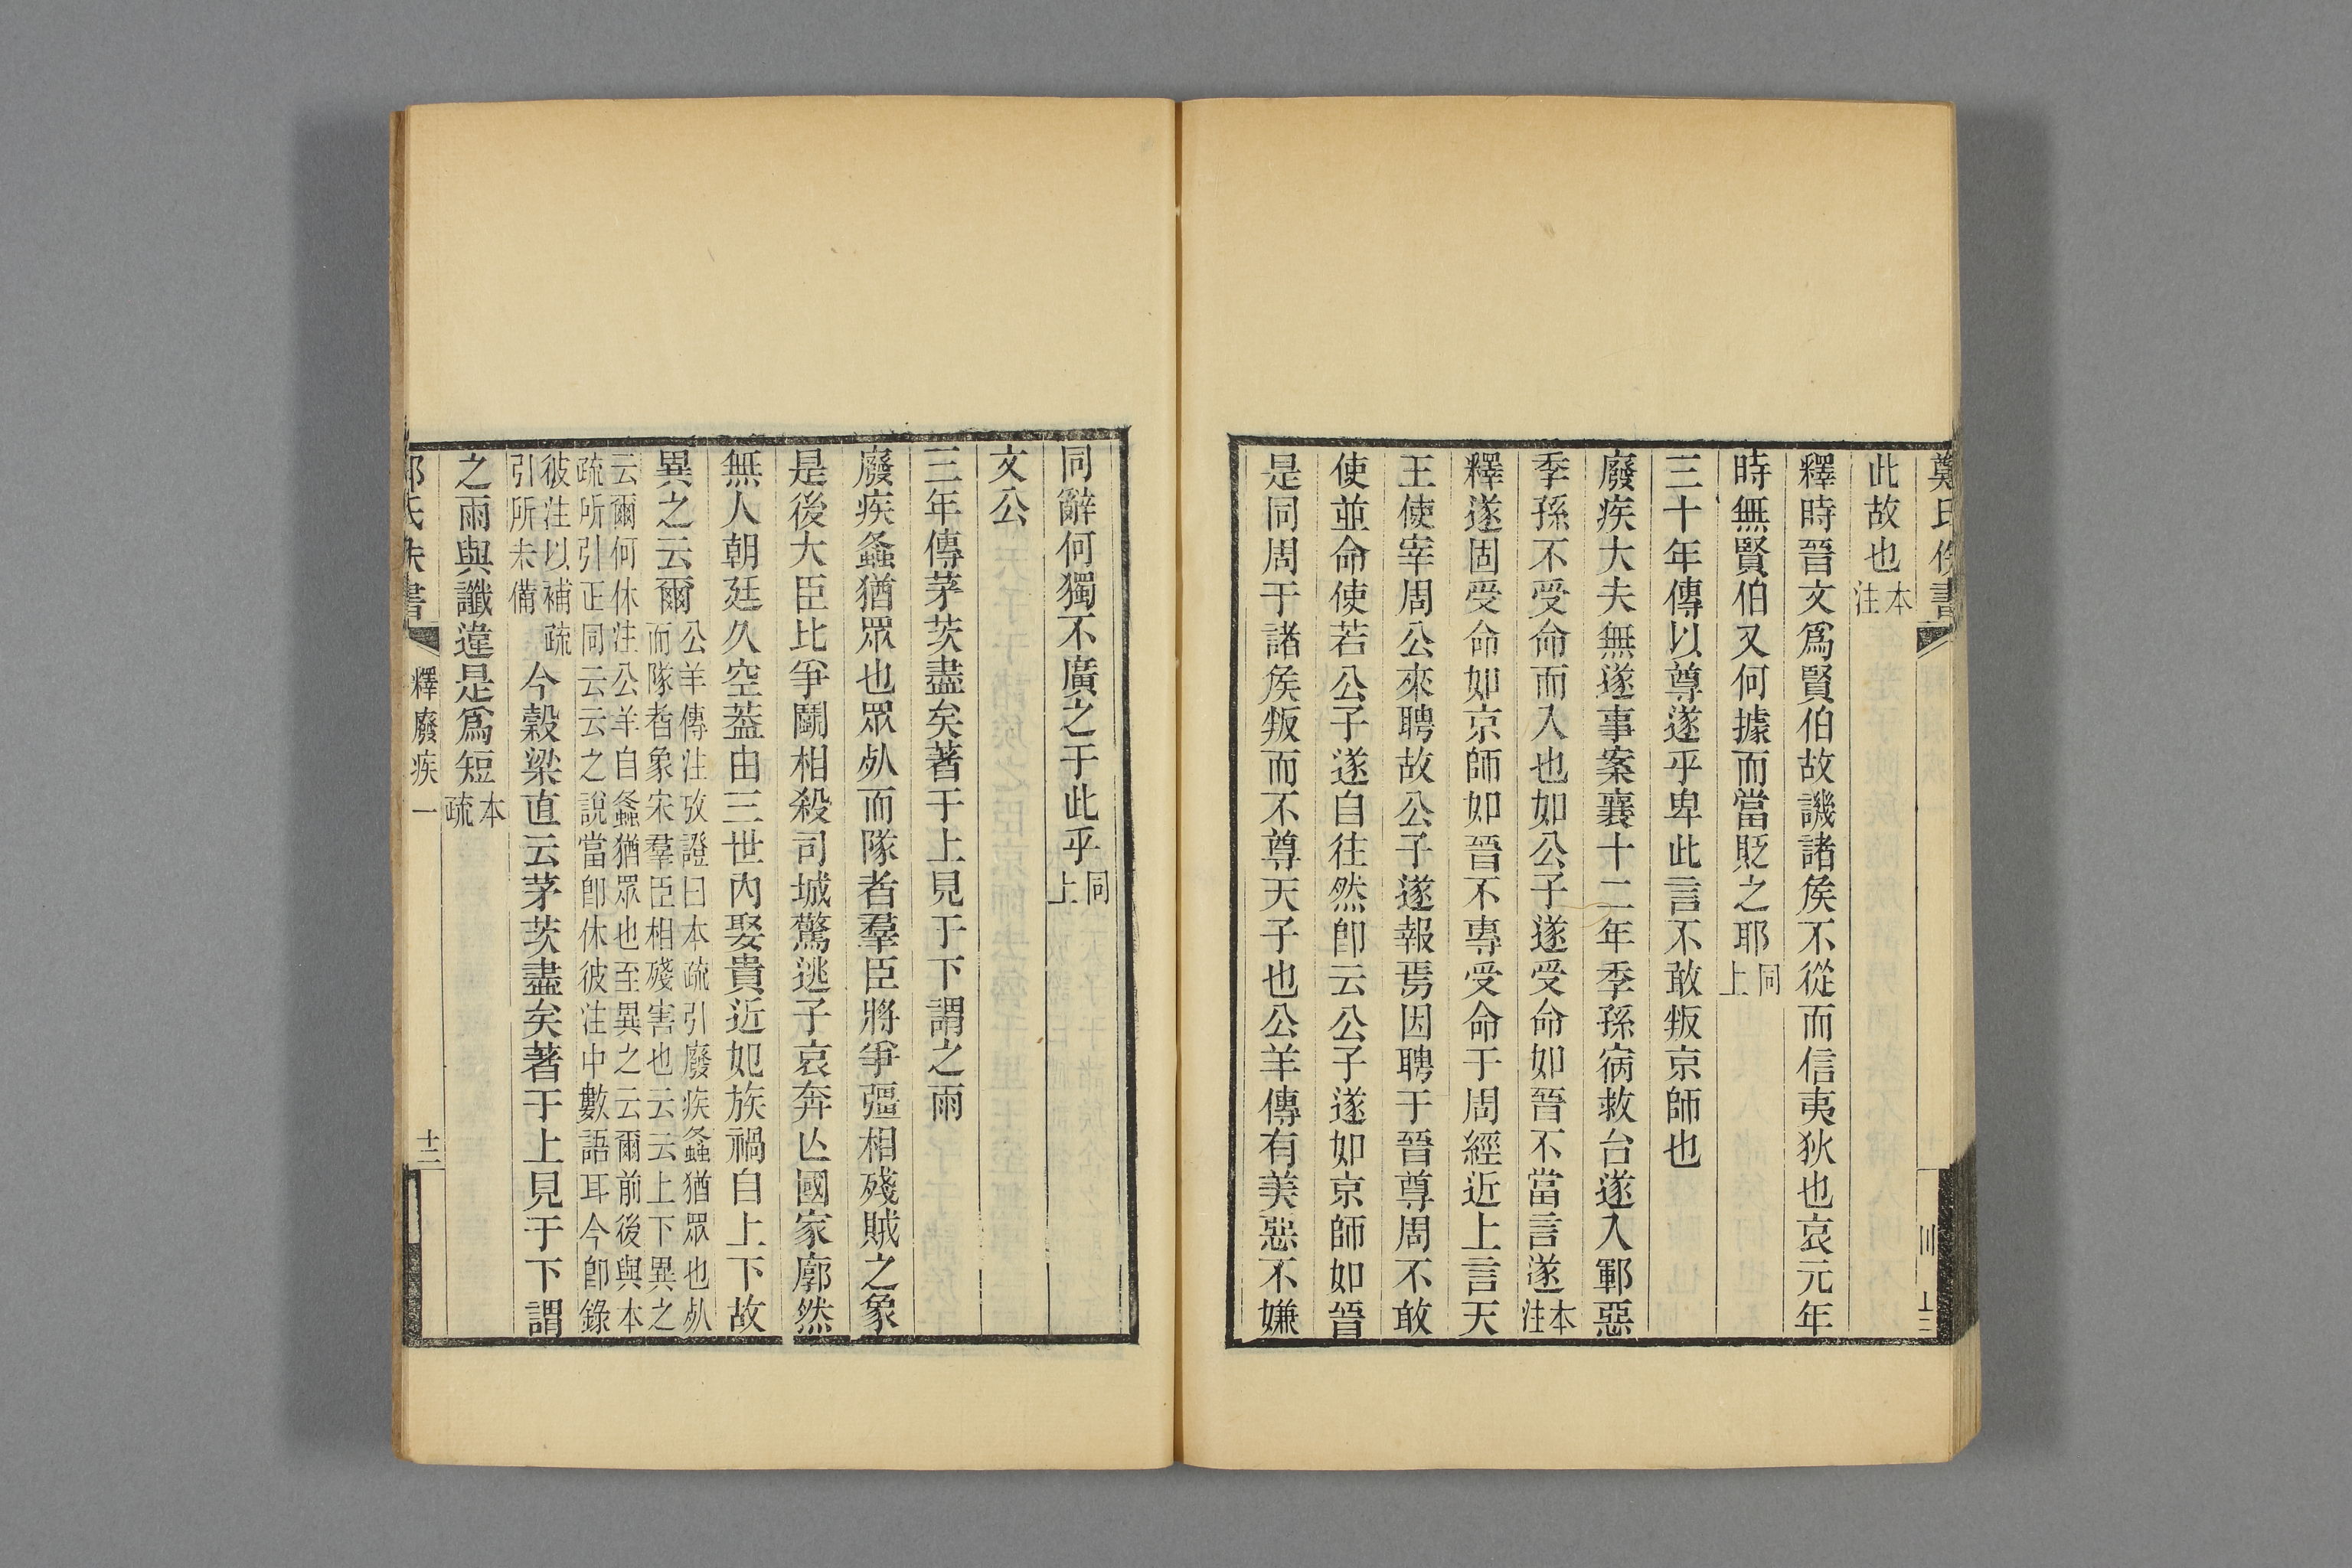 鄭氏佚書
此故也本注
釋時晉文爲賢伯故譏諸矦不從而信夷狄也哀元年
時無賢伯又何據而當貶之耶同上
三十年傳以尊遂乎卑此言不敢叛京師也
廢疾大夫無遂事案襄十二年季孫宿救台遂入鄆惡
季孫不受命而入也如公子遂受命如晉不當言遂本注
釋遂固受命如京師如晉不專受命于周經近上言天
王使宰周公來聘故公子遂報焉因聘于晉尊周不敢
使並命使若公子遂自往然卽云公子遂如京師如晉
是同周于諸矦叛而不尊天子也公羊傳有美惡不嫌
同辭何獨不廣之于此乎同上
文公
三年傳茅茨盡矣著于上見于下謂之雨
廢疾螽猶眾也眾𣦸而隊者羣臣將爭彊相殘賊之象
是後大臣比爭鬭相殺司城驚逃子哀奔亾國家廓然
無人朝廷久空葢由三世內娶貴近妃族禍自上下故
異之云爾
公羊傳注攷證曰本疏引廢疾螽猶眾也𣦸
而隊者象宋羣臣相殘害也云云上下異之
云爾何休注公羊自螽猶眾也至異之云爾前後與本
疏所引正同云云之說當卽休彼注中數語耳今卽錄
彼注以補疏
引所未備
今穀梁直云茅茨盡矣著于上見于下謂
之雨與讖違是爲短本疏
釋廢疾一
十三